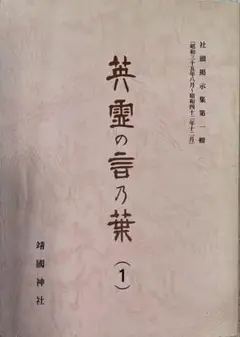 社頭掲示集第一輯
(昭和三十五年八月~昭和四十二年十二月)
英霊の言乃葉
(1)
靖國神社